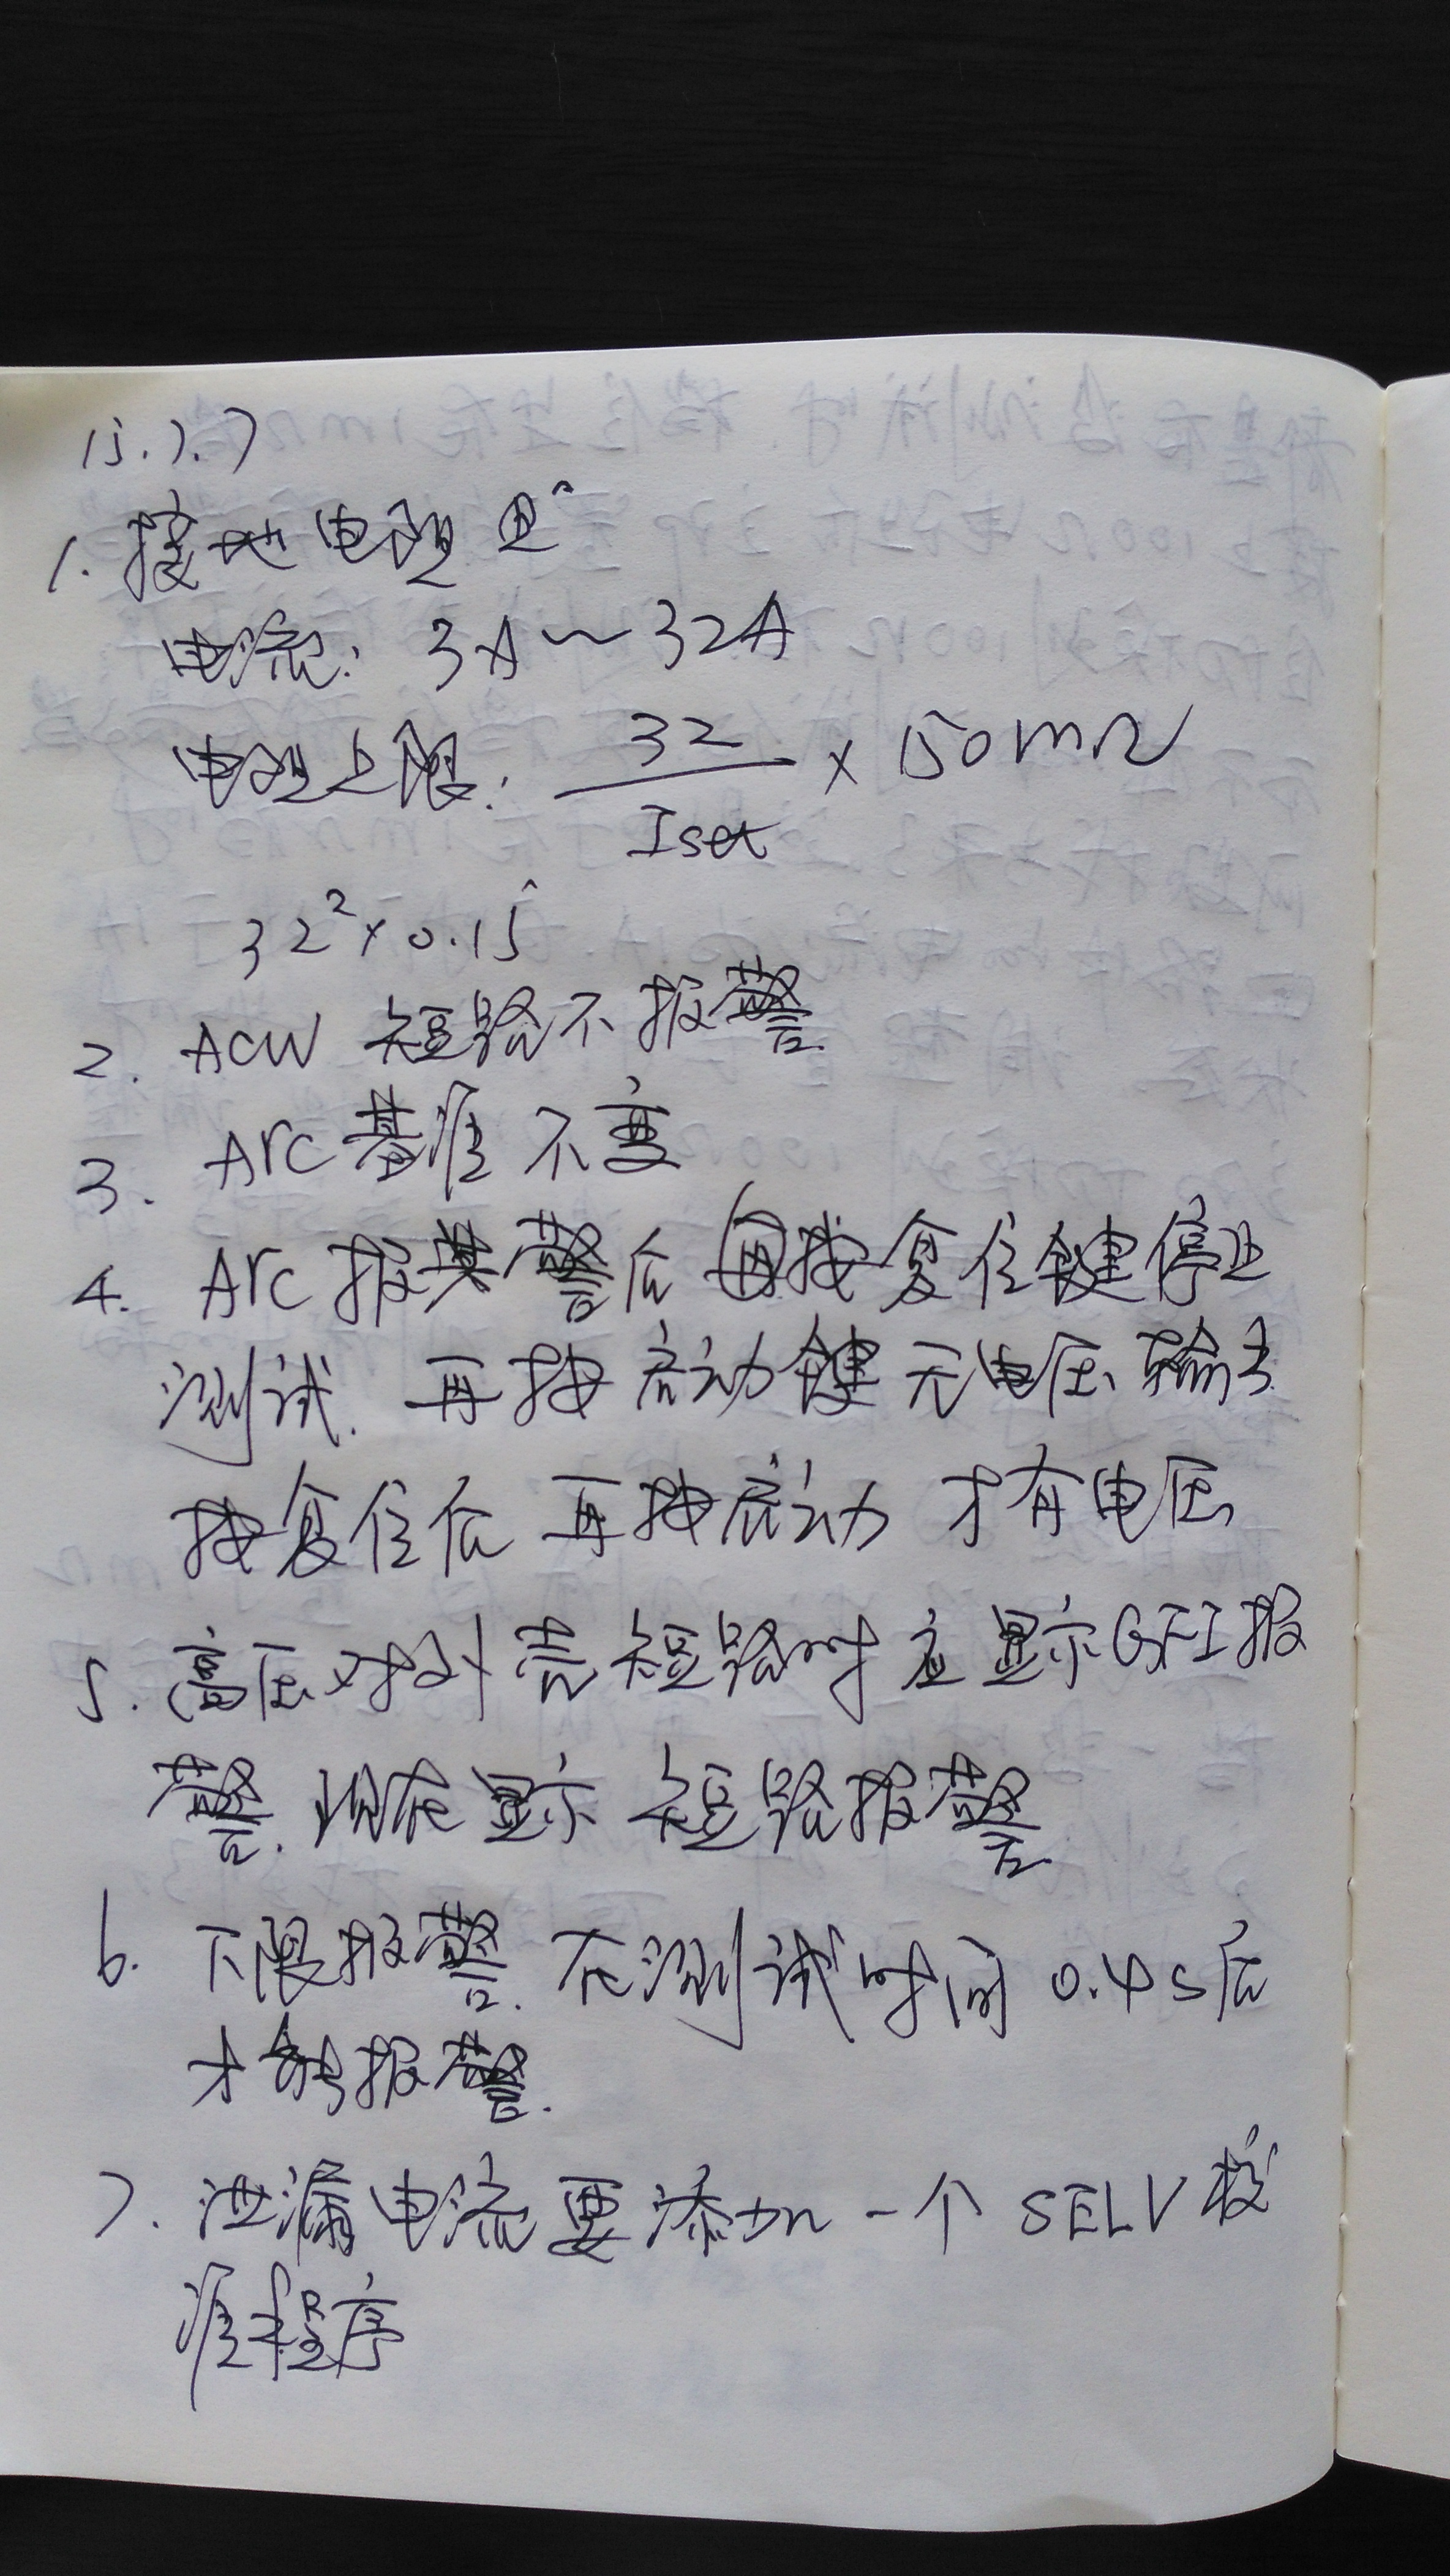 15.7.7
1. 接地电阻
电流: 3A～32A
电阻上限: 32/Iset × 150mΩ
32²×0.15
2. ACW 短路不报警
3. Arc 基准不变
4. Arc 报警后 再按复位键停止
测试. 再按启动键无电压输出
按复位后 再按启动 才有电压
5. 高压对外壳短路时应显示GFI报
警. 现在显示 短路报警
6. 下限报警. 在测试时间 0.4s后
才能报警.
7. 泄漏电流要添加一个 SELV 校
准程序